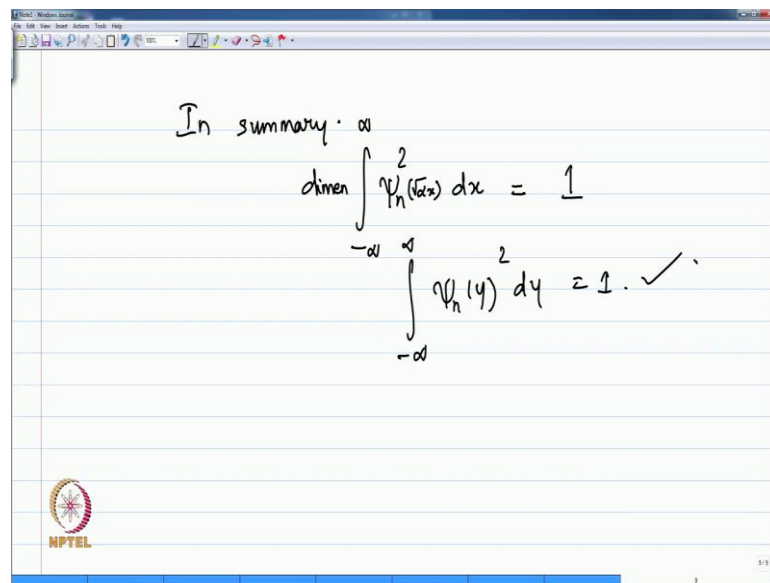 Note1 - Windows Journal
File Edit View Insert Actions Tools Help
In summary.
dimen ∫_{-∞}^{∞} ψ_n^2(√αx) dx = 1
∫_{-∞}^{∞} ψ_n(y)^2 dy = 1. ✓
NPTEL
5/5
3